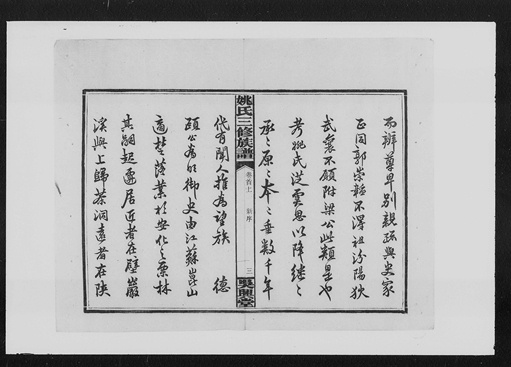 而辨尊卑別親疏與史家
正同郭崇韜不得祖汾陽狄
武襄不願附梁公此類是也
考姚氏從雲恩以降繼〻
承〻原〻本〻垂數千年
姚氏三修族譜
卷首上
新序
三
吳興堂
代有聞人推為望族 德
頤公為明御史由江蘇崑山
適楚落業於安化之栗林
其嗣起遷居近者在壁巖
溪與上歸茶洞遠者在陝